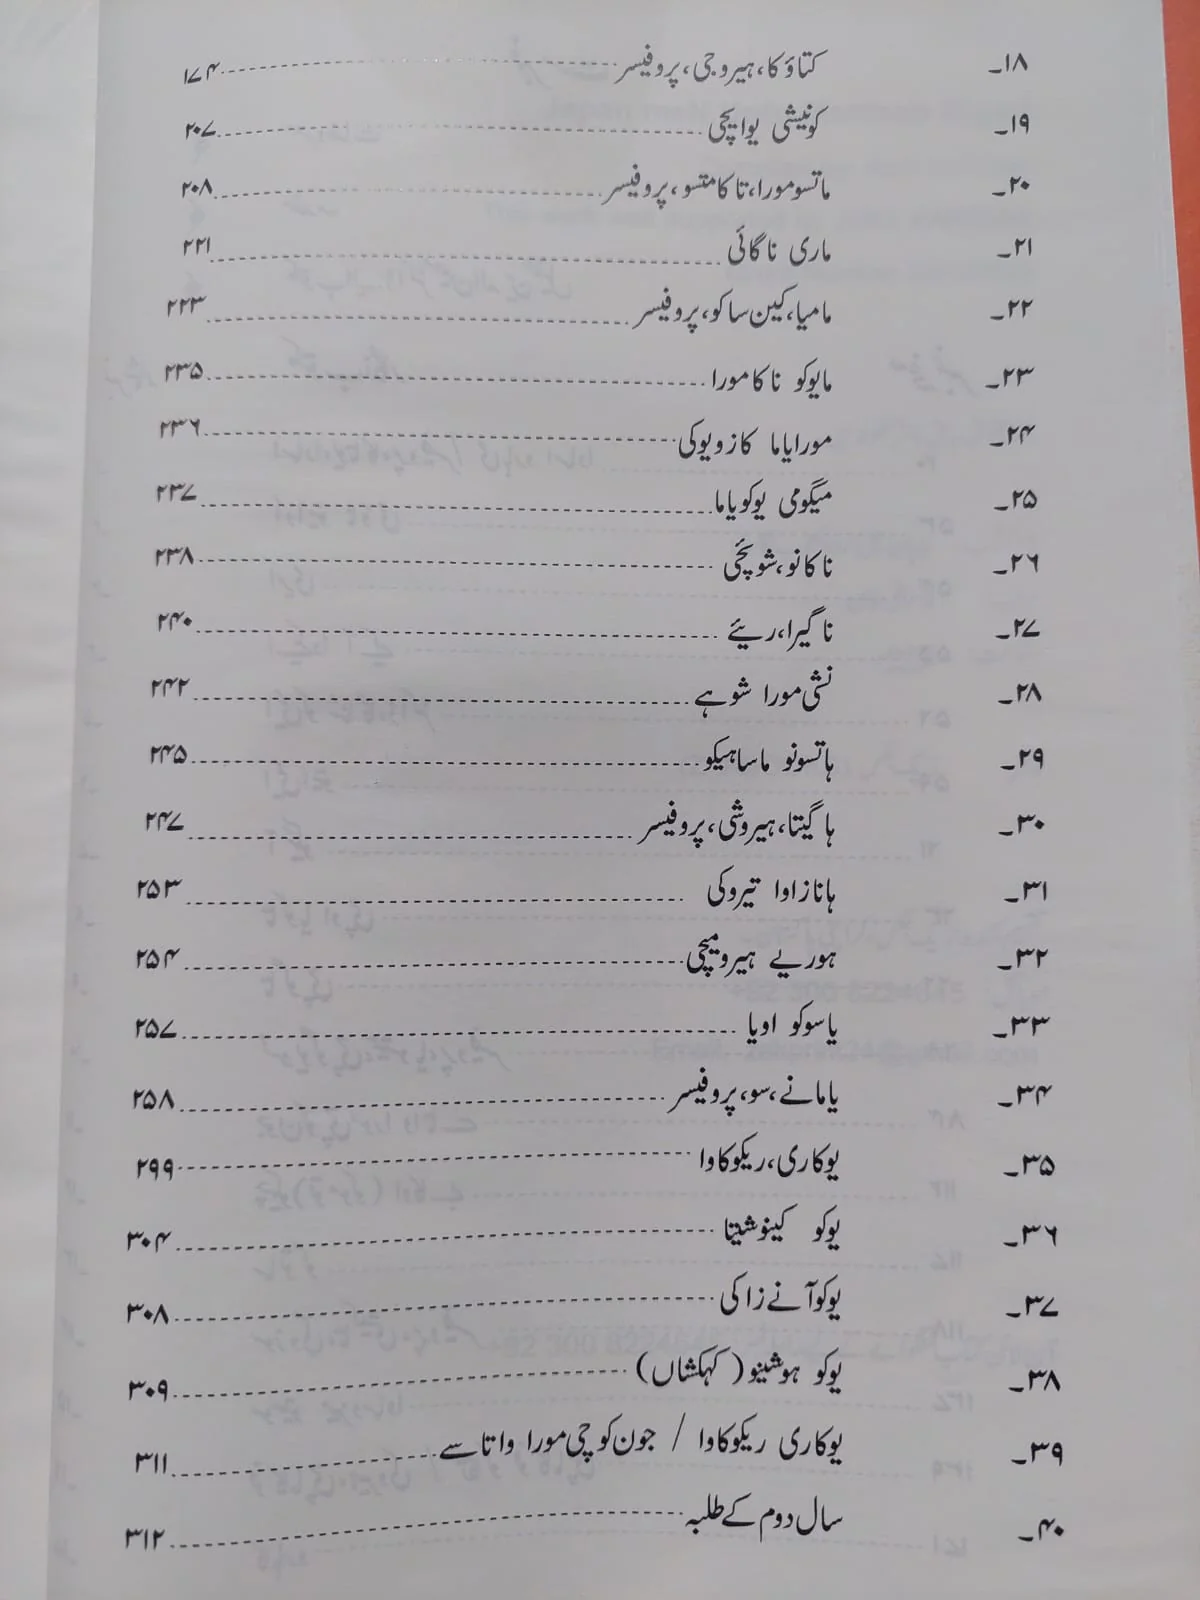 ۱۸۔ کتاؤکا، ہیروجی، پروفیسر ۱۷۴
۱۹۔ کونیشی یواچی ۲۰۷
۲۰۔ ماتسومورا، تاکامتسو، پروفیسر ۲۰۸
۲۱۔ ماری ناگائی ۲۲۱
۲۲۔ مامیا، کین ساکو، پروفیسر ۲۲۳
۲۳۔ مایوکو ناکامورا ۲۳۵
۲۴۔ مورایاما کازویوکی ۲۳۶
۲۵۔ میگومی یوکویاما ۲۳۷
۲۶۔ ناکانو، شوئچی ۲۳۸
۲۷۔ ناگیرا، ریئے ۲۴۰
۲۸۔ نشی مورا شوہے ۲۴۲
۲۹۔ ہاتسونو ماساہیکو ۲۴۵
۳۰۔ ہاگیتا، ہیروشی، پروفیسر ۲۴۷
۳۱۔ ہانازاوا تیروکی ۲۵۳
۳۲۔ ہوریے ہیرومیچی ۲۵۴
۳۳۔ یاسوکو اویا ۲۵۷
۳۴۔ یامانے، سو، پروفیسر ۲۵۸
۳۵۔ یوکاری، ریکوکاوا ۲۹۹
۳۶۔ یوکو کینوشیتا ۳۰۴
۳۷۔ یوکوآنے زاکی ۳۰۸
۳۸۔ یوکو ہوشینو (کہکشاں) ۳۰۹
۳۹۔ یوکاری ریکوکاوا / جون کوچی مورا واتاسے ۳۱۱
۴۰۔ سال دوم کے طلبہ ۳۱۲